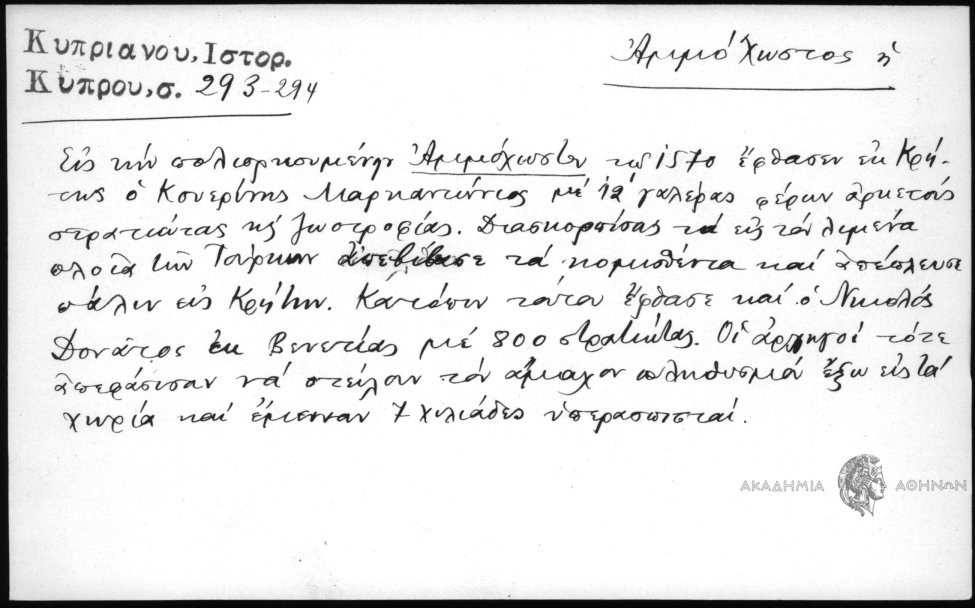 Κυπριανου, Ιστορ.
Κύπρου, σ. 293-294
Ἀμμόχωστος ἡ
Εἰς τὴν πολιορκουμένην Ἀμμόχωστον τῷ 1570 ἔφθασεν ἐκ Κρή-
της ὁ Κουερίνης Μαρκαντώνιος μέ 12 γαλέρας φέρων ἀρκετούς
στρατιώτας κς ζωοτροφίας. Διασκορπίσας τά εἰς τόν λιμένα
πλοῖα τῶν Τούρκων ἀπεβίβασε τά κομισθέντα καί ἀπέπλευσε
πάλιν εἰς Κρήτην. Κατόπιν τούτου ἔφθασε καί ὁ Νικολός
Δονᾶτος ἐκ Βενετίας μέ 800 στρατιώτας. Οἱ ἀρχηγοί τότε
ἀπεφάσισαν νά στείλουν τόν ἄμαχον πληθυσμόν ἔξω εἰς τά
χωρία καί ἔμειναν 7 χιλιάδες ὑπερασπισταί.
ΑΚΑΔΗΜΙΑ ΑΘΗΝΩΝ